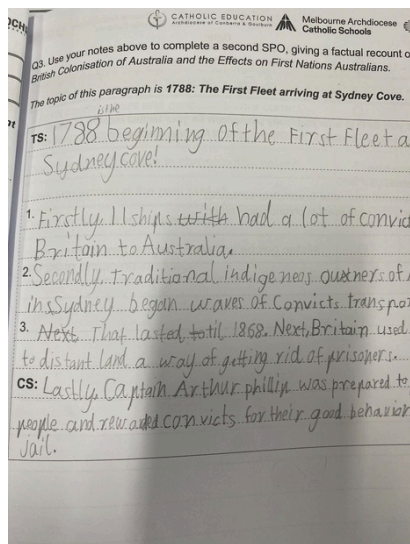 CATHOLIC EDUCATION
Archdiocese of Canberra & Goulburn
Melbourne Archdiocese
Catholic Schools
Q3. Use your notes above to complete a second SPO, giving a factual recount o
British Colonisation of Australia and the Effects on First Nations Australians.
The topic of this paragraph is 1788: The First Fleet arriving at Sydney Cove.
TS: 1788 beginning of the First Fleet a
Sydney cove!
1. Firstly, 11 ships with had a lot of convic
Britain to Australia.
2. Secondly, traditional indigeneos ouwners of
in Sydney began waves of Convicts transpo
3. Next That lasted to til 1868. Next, Britain used
to distant land a way of getting rid of prisoners.
CS: Lastly, Captain Arthur phillip was prepared to
people and rewarded convicts for their good behavior
Jail.